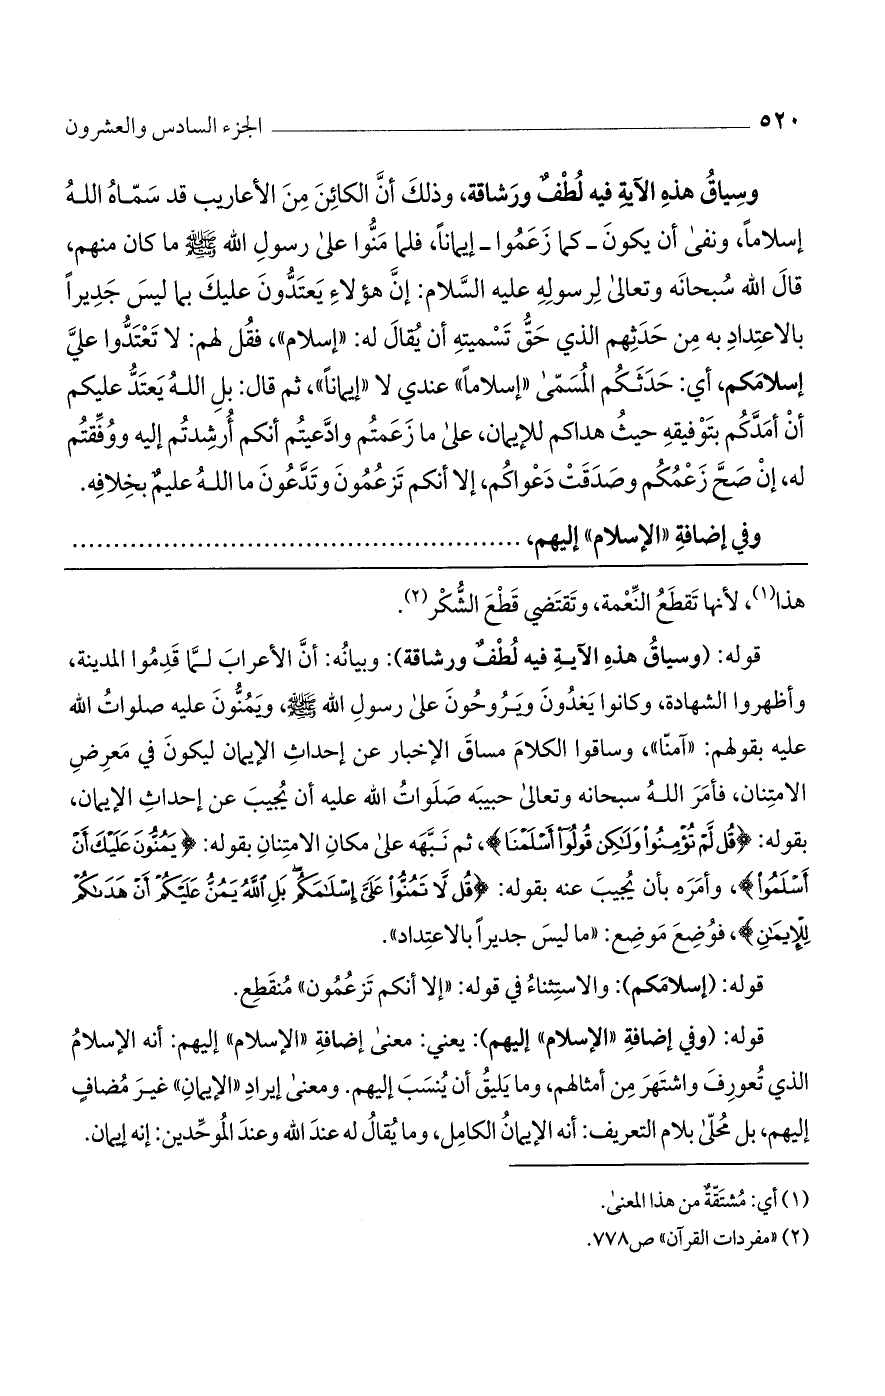 ٥٢٠ ــــــــــــــــــــ الجزء السادس والعشرون
وسِياقُ هذهِ الآيةِ فيه لُطْفٌ ورَشاقة، وذلكَ أنَّ الكائِنَ مِنَ الأعاريب قد سَمّاهُ اللهُ
إسلاماً، ونفىٰ أن يكونَ ـ كما زَعَمُوا ـ إيماناً، فلما مَنُّوا علىٰ رسولِ الله ﷺ ما كان منهم،
قالَ الله سُبحانَه وتعالىٰ لِرسولِهِ عليه السَّلام: إنَّ هؤلاءِ يَعتَدُّونَ عليكَ بما ليسَ جَدِيراً
بالاعتِدادِ به مِن حَدَثِهم الذي حَقُّ تَسْميتِهِ أن يُقالَ له: «إسلام»، فقُل لهم: لا تَعْتَدُّوا عليَّ
إسلامَكم، أي: حَدَثَكُم المُسَمّىٰ «إسلاماً» عندي لا «إيماناً»، ثم قال: بلِ اللهُ يَعتَدُّ عليكم
أنْ أمَدَّكُم بتَوْفيقهِ حيثُ هداكم للإيمان، علىٰ ما زَعَمتُم وادَّعيتُم أنكم أُرشِدتُم إليه ووُفِّقتُم
له، إنْ صَحَّ زَعْمُكُم وصَدَقَتْ دَعْواكُم، إلا أنكم تَزعُمُونَ وتَدَّعُونَ ما اللهُ عليمٌ بخِلافِه.
وفي إضافةِ «الإسلام» إليهم، ......................................................
هذا(١)، لأنها تَقطَعُ النِّعْمة، وتَقتَضي قَطْعَ الشُّكْر(٢).
قوله: (وسياقُ هذهِ الآيةِ فيه لُطْفٌ ورشاقة): وبيانُه: أنَّ الأعرابَ لـمَّا قَدِمُوا المدينة،
وأظهروا الشهادة، وكانوا يَغدُونَ ويَروحُونَ علىٰ رسولِ الله ﷺ، ويَمُنُّونَ عليه صلواتُ الله
عليه بقولهم: «آمنّا»، وساقوا الكلامَ مساقَ الإخبار عن إحداثِ الإيمان ليكونَ في مَعرِضِ
الامتِنان، فأمَرَ اللهُ سبحانه وتعالىٰ حبيبَه صَلَواتُ الله عليه أن يُجيبَ عن إحداثِ الإيمان،
بقوله: ﴿قُل لَّمْ تُؤْمِنُوا۟ وَلَٰكِن قُولُوٓا۟ أَسْلَمْنَا﴾، ثم نَبَّهَه علىٰ مكانِ الامتِنانِ بقوله: ﴿يَمُنُّونَ عَلَيْكَ أَنْ
أَسْلَمُوا۟﴾، وأمَرَه بأن يُجيبَ عنه بقوله: ﴿قُل لَّا تَمُنُّوا۟ عَلَىَّ إِسْلَٰمَكُم ۖ بَلِ ٱللَّهُ يَمُنُّ عَلَيْكُمْ أَنْ هَدَىٰكُمْ
لِلْإِيمَٰنِ﴾، فوُضِعَ مَوضِع: «ما ليسَ جديراً بالاعتِداد».
قوله: (إسلامَكم): والاستِثناءُ في قوله: «إلا أنكم تَزعُمُون» مُنقَطِع.
قوله: (وفي إضافةِ «الإسلام» إليهم): يعني: معنىٰ إضافةِ «الإسلام» إليهم: أنه الإسلامُ
الذي تُعورِفَ واشتَهَرَ مِن أمثالهم، وما يَليقُ أن يُنسَبَ إليهم. ومعنىٰ إيرادِ «الإيمانِ» غيرَ مُضافٍ
إليهم، بل مُحلّىٰ بلام التعريف: أنه الإيمانُ الكامِل، وما يُقالُ له عندَ الله وعندَ المُوحِّدين: إنه إيمان.
(١) أي: مُشتَقَّةٌ من هذا المعنىٰ.
(٢) «مفردات القرآن» ص٧٧٨.